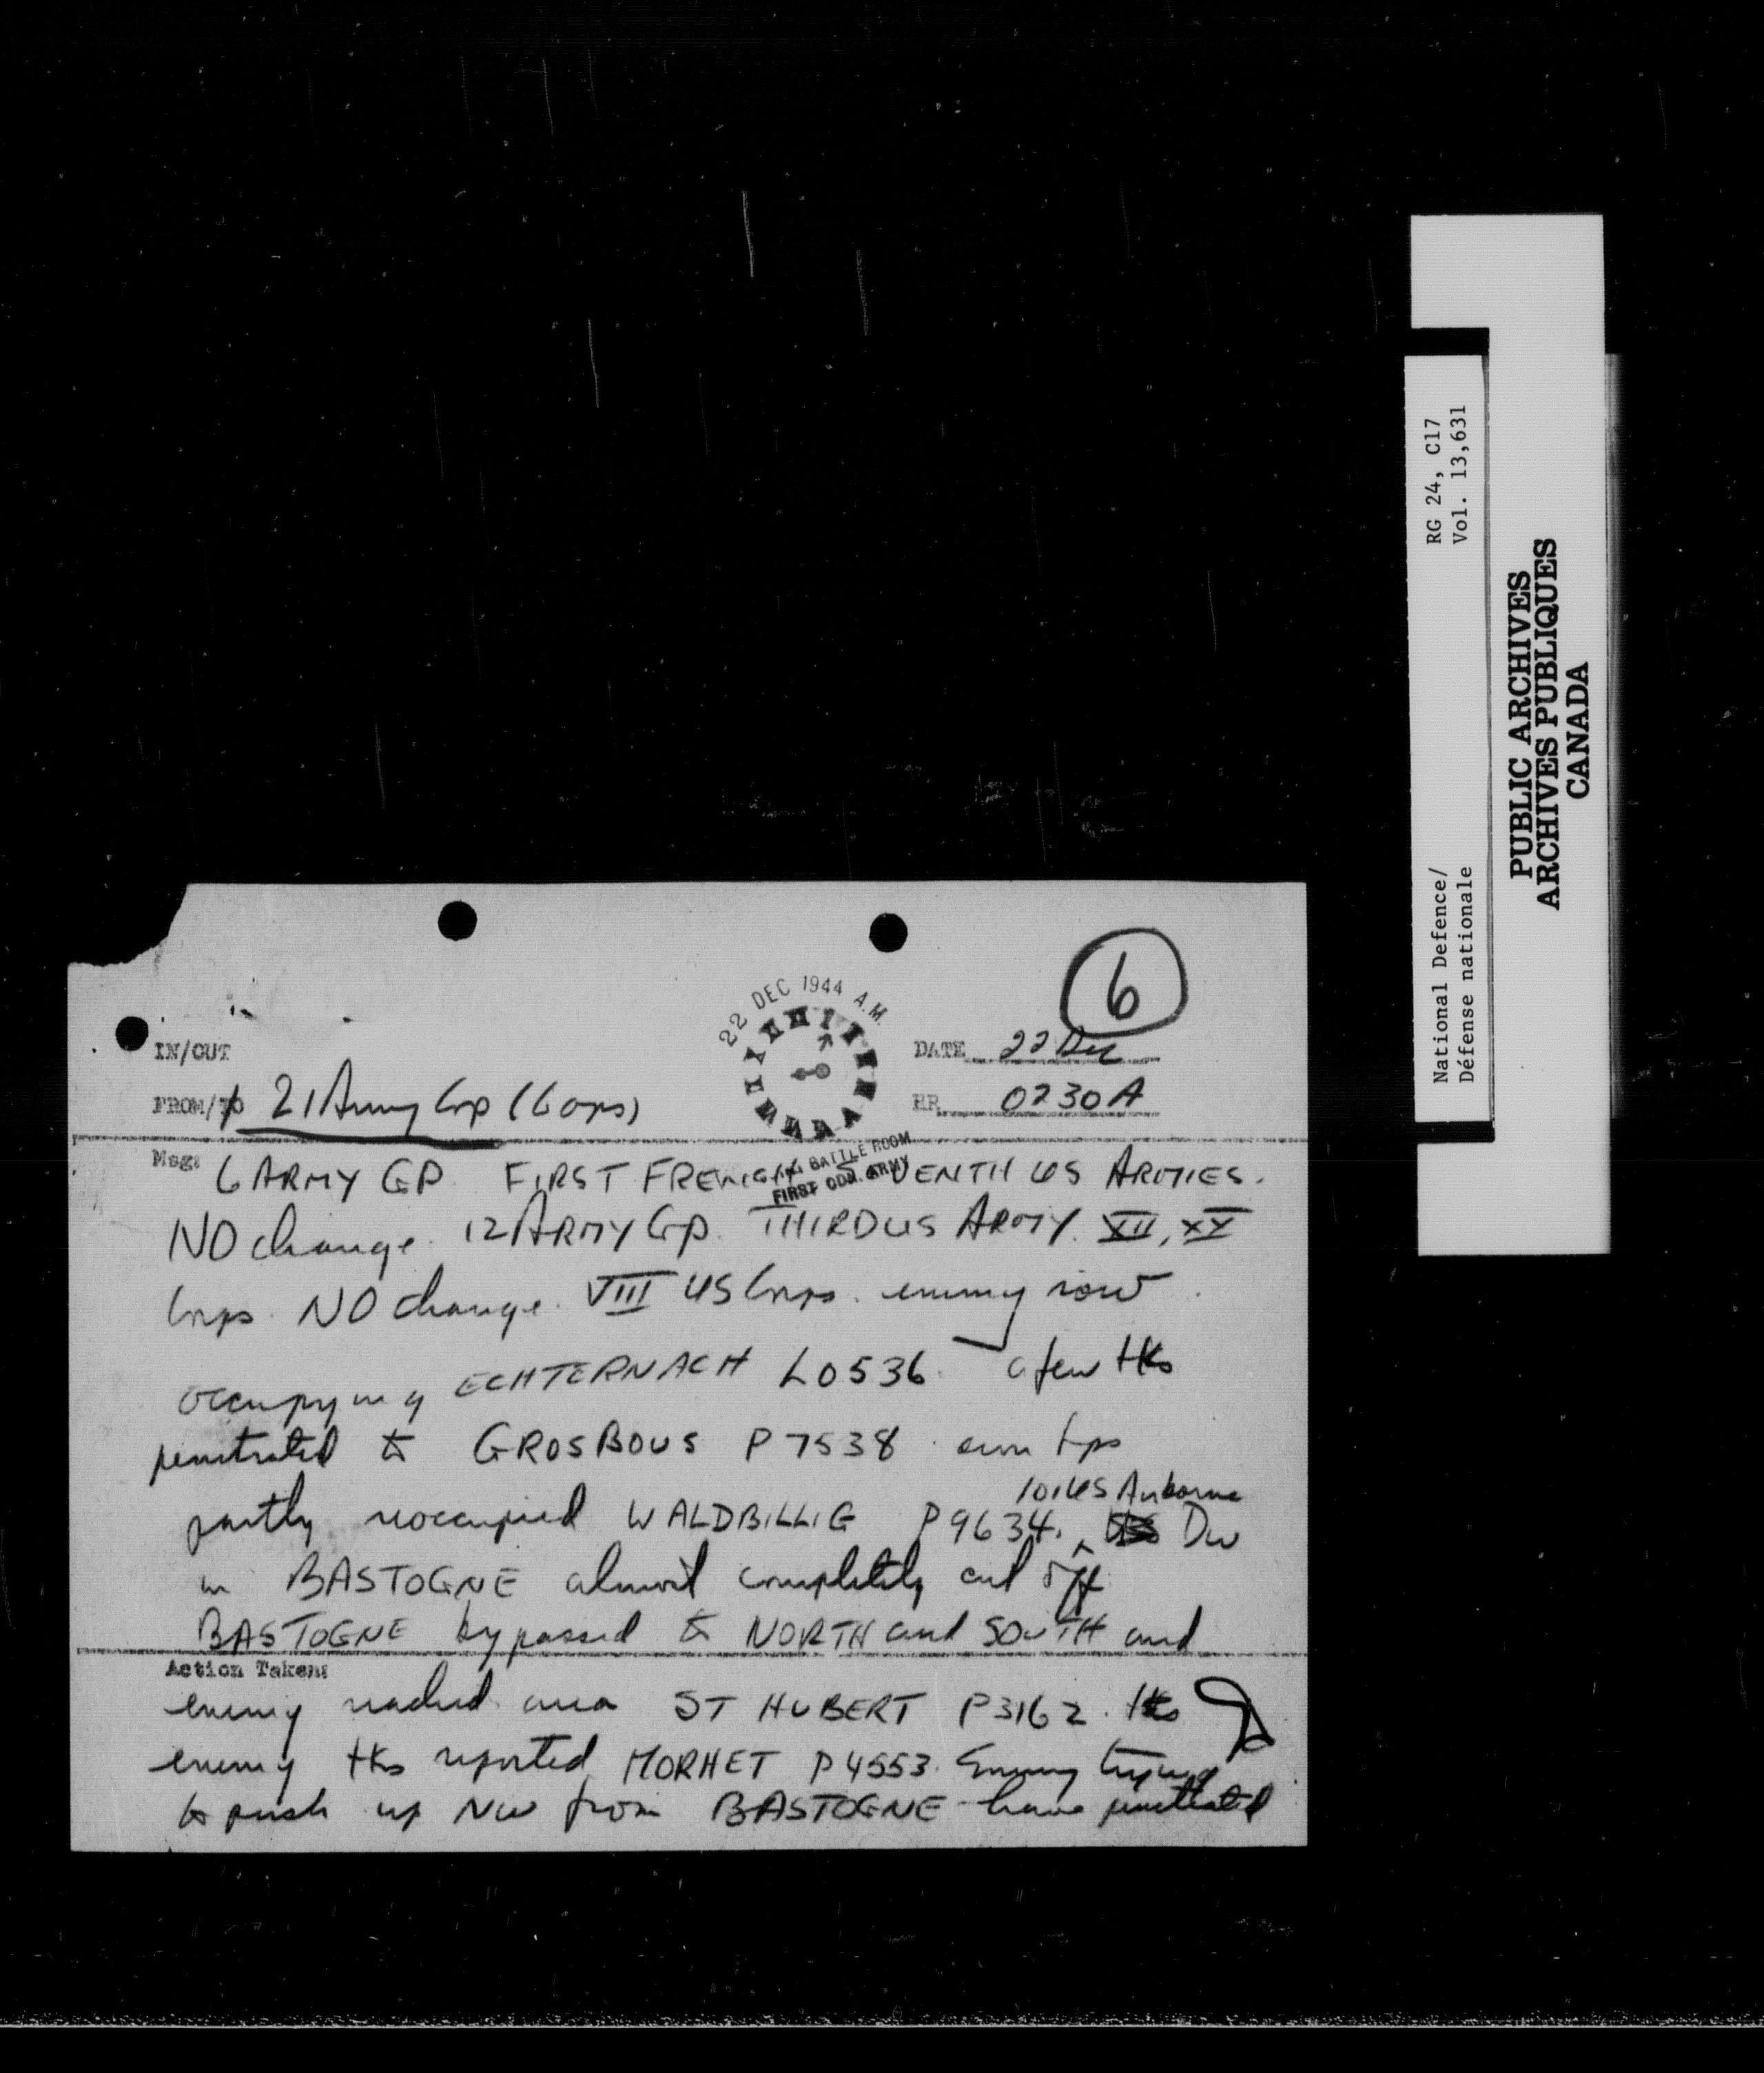 RG 24, C17
Vol. 13,631
National Defence/
Défense nationale
PUBLIC ARCHIVES
ARCHIVES PUBLIQUES
CANADA
6
22 DEC 1944 A.M.
BATTLE ROOM
FIRST CDN. ARMY
IN/OUT
DATE 22 Dec
FROM/TO 21 Army Gp (Gops)
HR 0230A
Msg:
6 ARMY GP. FIRST FRENCH, SEVENTH US ARMIES.
NO change. 12 ARMY Gp. THIRD US ARMY. XII, XX
Corps. NO change. VIII US Corps. enemy now
occupying ECHTERNACH L0536. a few tks
penetrated to GROSBOUS P7538. own tps
partly reoccupied WALDBILLIG P9634. 101 US Airborne Div
in BASTOGNE almost completely cut off
BASTOGNE bypassed to NORTH and SOUTH and
Action Taken:
enemy reached area ST HUBERT P3162. tks
enemy tks reported MORHET P4553. Enemy trying
to push up NW from BASTOGNE have penetrated